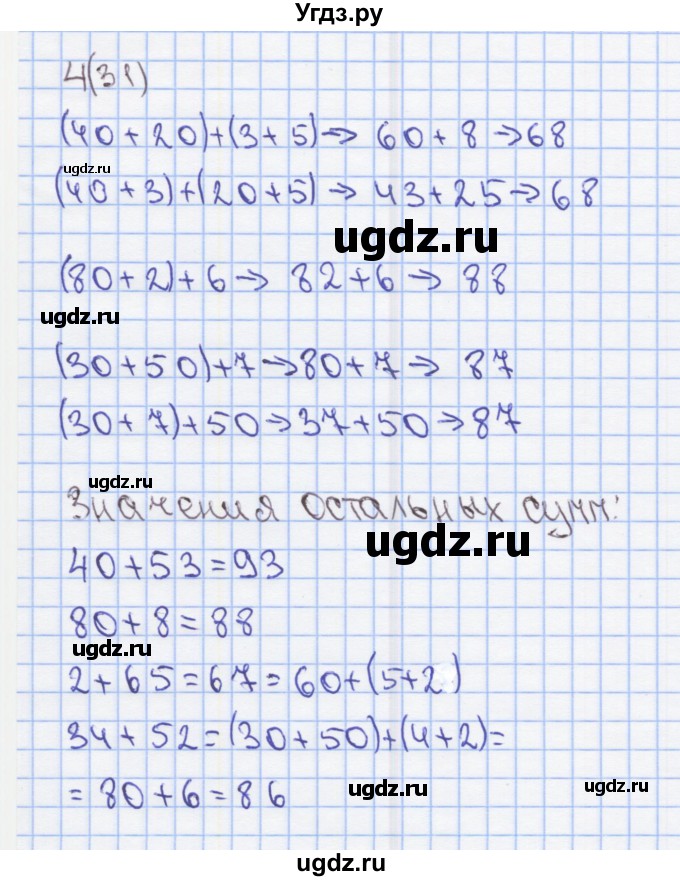 Угдз.ру
4(31)
(40+20)+(3+5)→ 60+8→68
ugdz.ru
(40+3)+(20+5)→ 43+25→68
ugdz.ru
(80+2)+6→ 82+6→ 88
ugdz.ru
(30+50)+7→80+7→ 87
(30+7)+50→37+50→87
ugdz.ru
Значения остальных сумм:
ugdz.ru
40+53=93
80+8=88
ugdz.ru
2+65=67=60+(5+2)
34+52=(30+50)+(4+2)=
=80+6=86
ugdz.ru
ugdz.ru
ugdz.ru